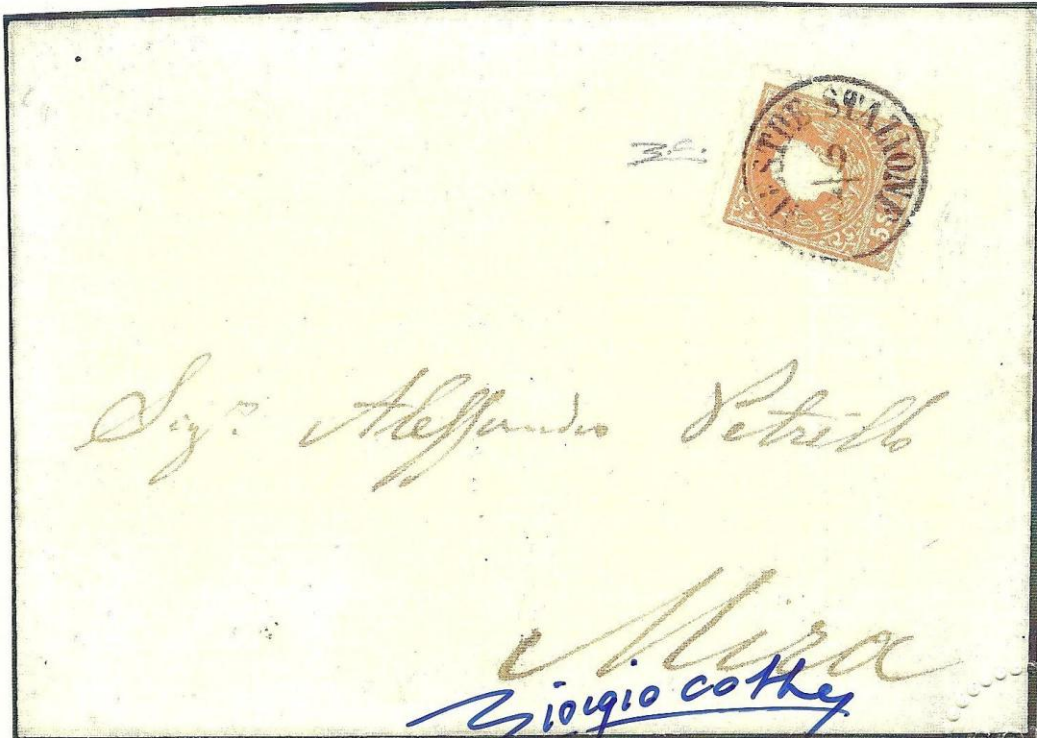 MESTRE STAZIONE
9/6
5 S
G.C.
Sig.r Alessandro Petrillo
Mira
Giorgio Colla